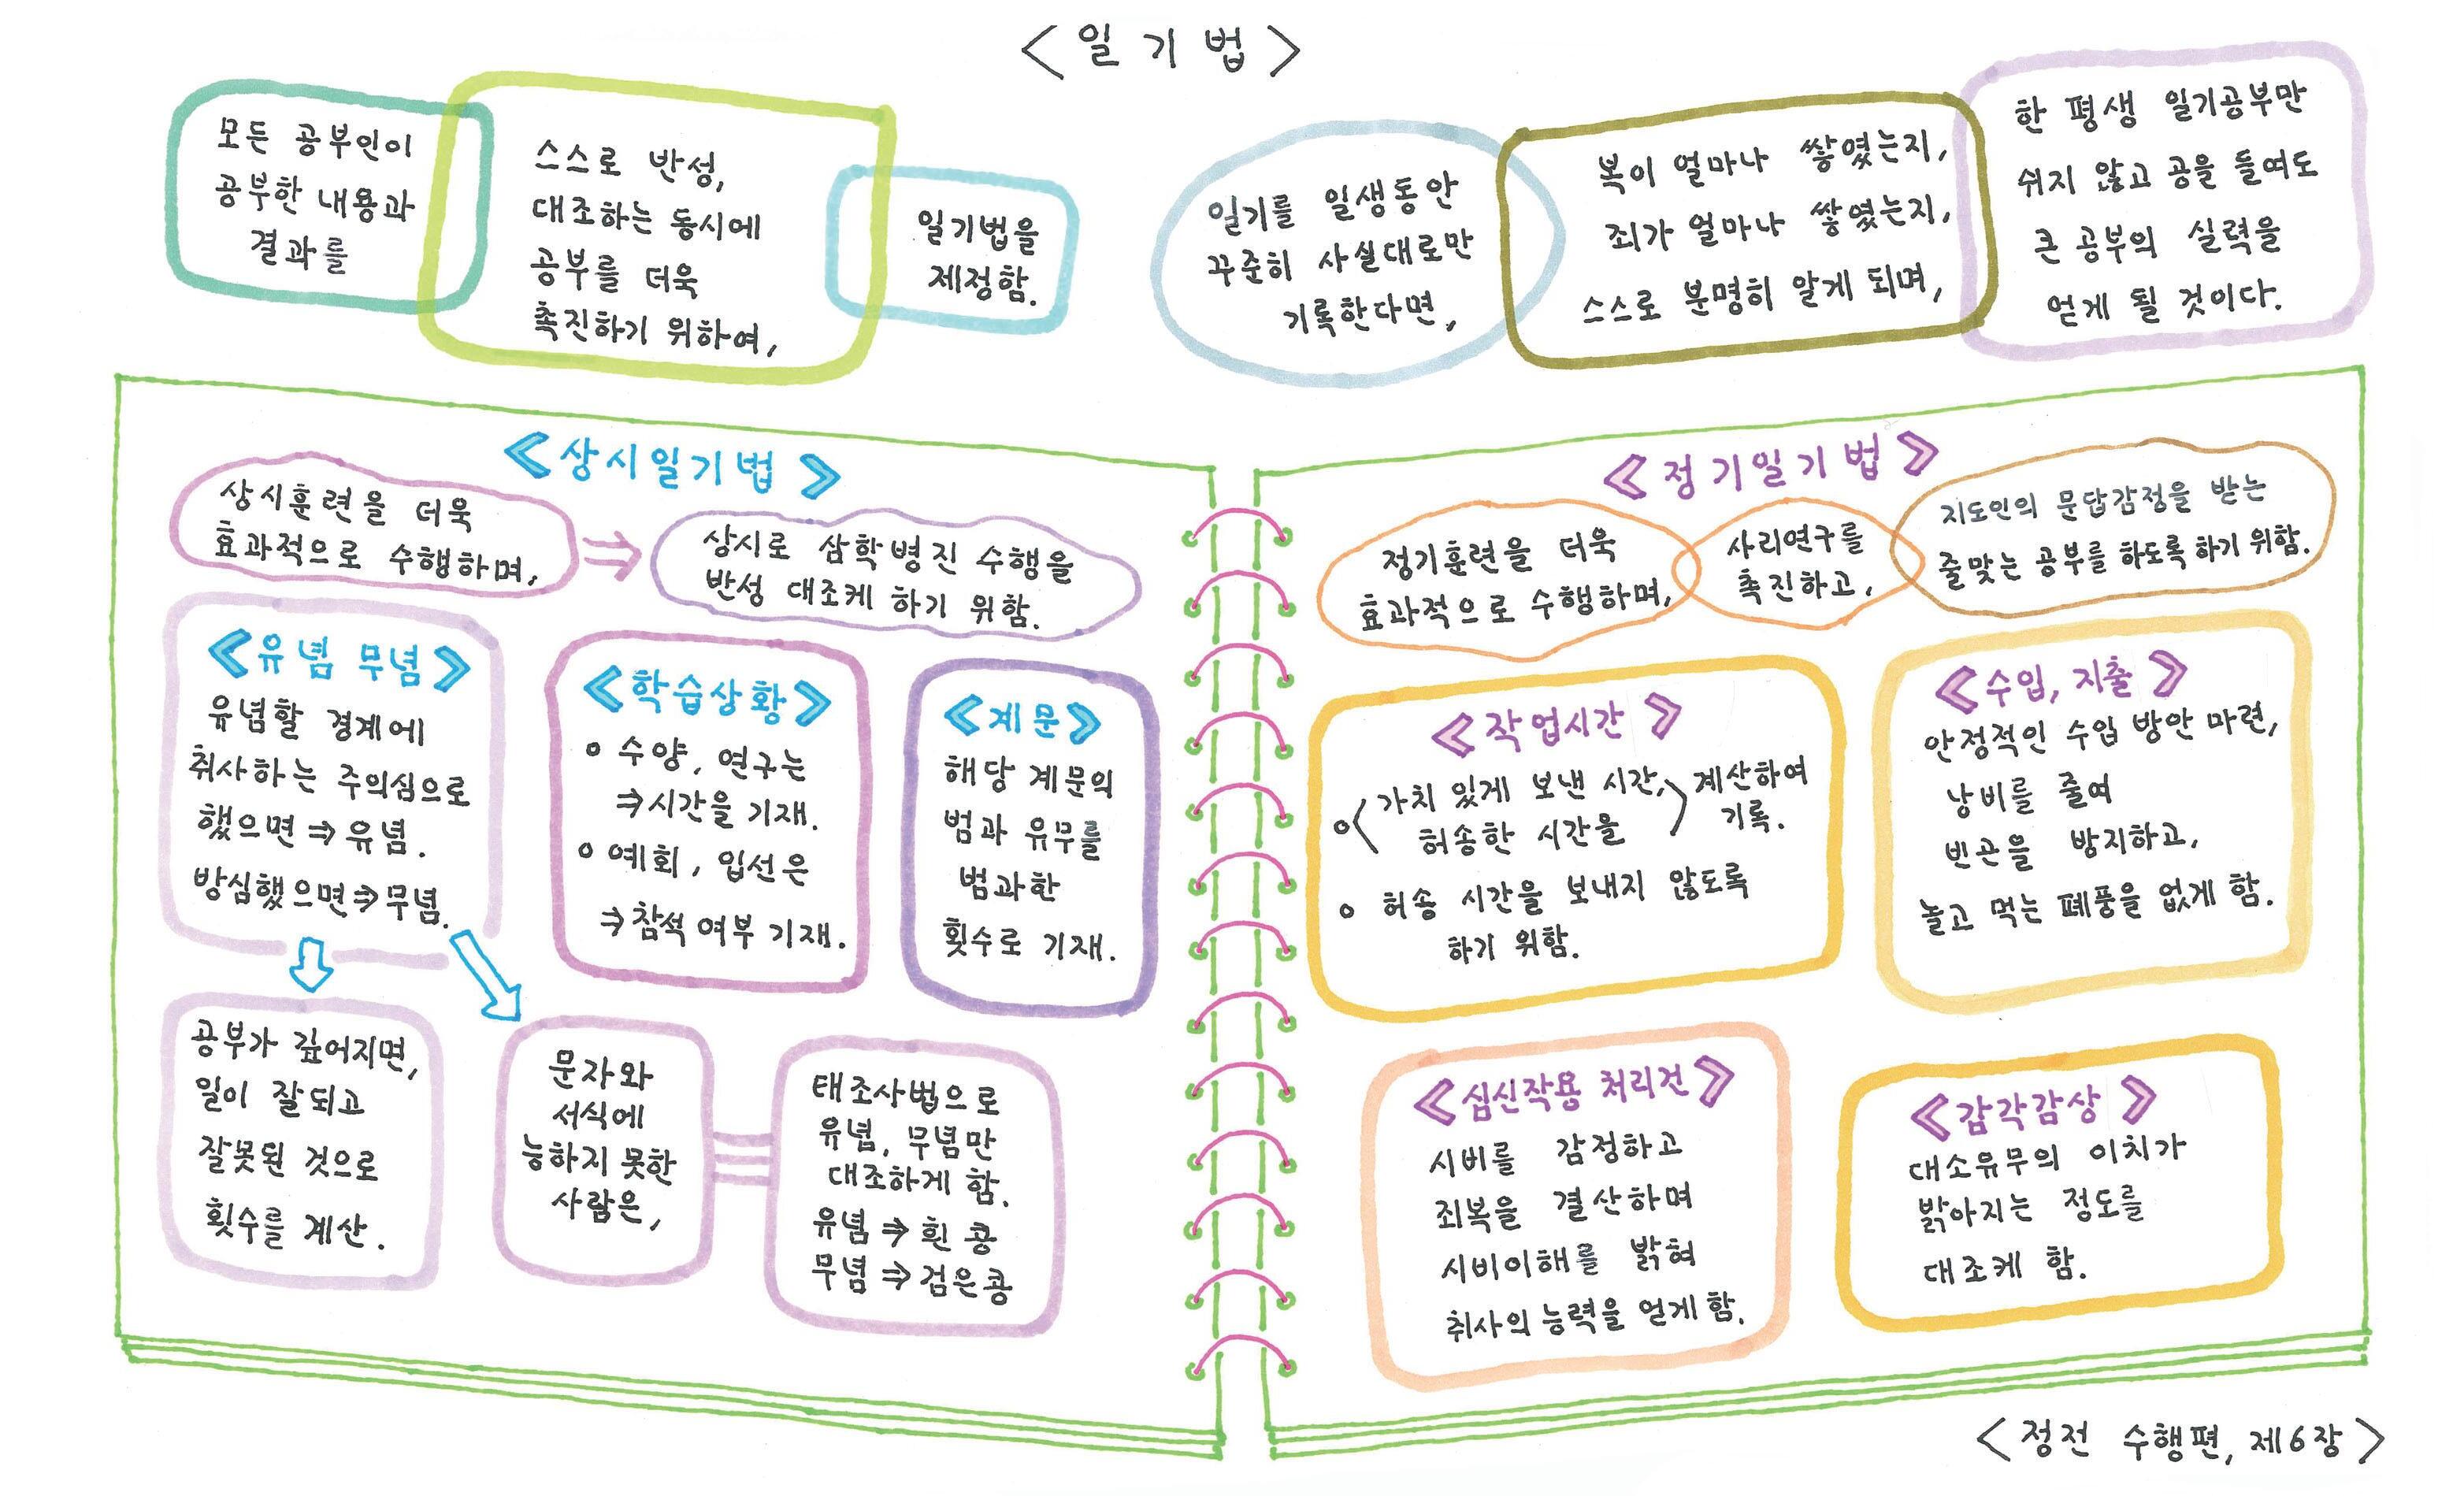 <일기법>
모든 공부인이
공부한 내용과
결과를
스스로 반성,
대조하는 동시에
공부를 더욱
촉진하기 위하여,
일기법을
제정함.
일기를 일생동안
꾸준히 사실대로만
기록한다면,
복이 얼마나 쌓였는지,
죄가 얼마나 쌓였는지,
스스로 분명히 알게 되며,
한 평생 일기공부만
쉬지 않고 공을 들여도
큰 공부의 실력을
얻게 될 것이다.
<상시일기법>
상시훈련을 더욱
효과적으로 수행하며,
⇒
상시로 삼학병진 수행을
반성 대조케 하기 위함.
<유념 무념>
유념할 경계에
취사하는 주의심으로
했으면 ⇒ 유념.
방심했으면 ⇒ 무념.
<학습상황>
○ 수양, 연구는
⇒ 시간을 기재.
○ 예회, 입선은
⇒ 참석 여부 기재.
<계문>
해당 계문의
범과 유무를
범과한
횟수로 기재.
공부가 깊어지면,
일이 잘되고
잘못된 것으로
횟수를 계산.
문자와
서식에
능하지 못한
사람은,
태조사법으로
유념, 무념만
대조하게 함.
유념 ⇒ 흰 콩
무념 ⇒ 검은콩
<정기일기법>
정기훈련을 더욱
효과적으로 수행하며,
사리연구를
촉진하고,
지도인의 문답감정을 받는
줄맞는 공부를 하도록 하기 위함.
<작업시간>
○ 가치 있게 보낸 시간,
허송한 시간을
계산하여
기록.
○ 허송 시간을 보내지 않도록
하기 위함.
<수입, 지출>
안정적인 수입 방안 마련,
낭비를 줄여
빈곤을 방지하고,
놀고 먹는 폐풍을 없게 함.
<심신작용 처리건>
시비를 감정하고
죄복을 결산하며
시비이해를 밝혀
취사의 능력을 얻게 함.
<감각감상>
대소유무의 이치가
밝아지는 정도를
대조케 함.
<정전 수행편, 제6장>